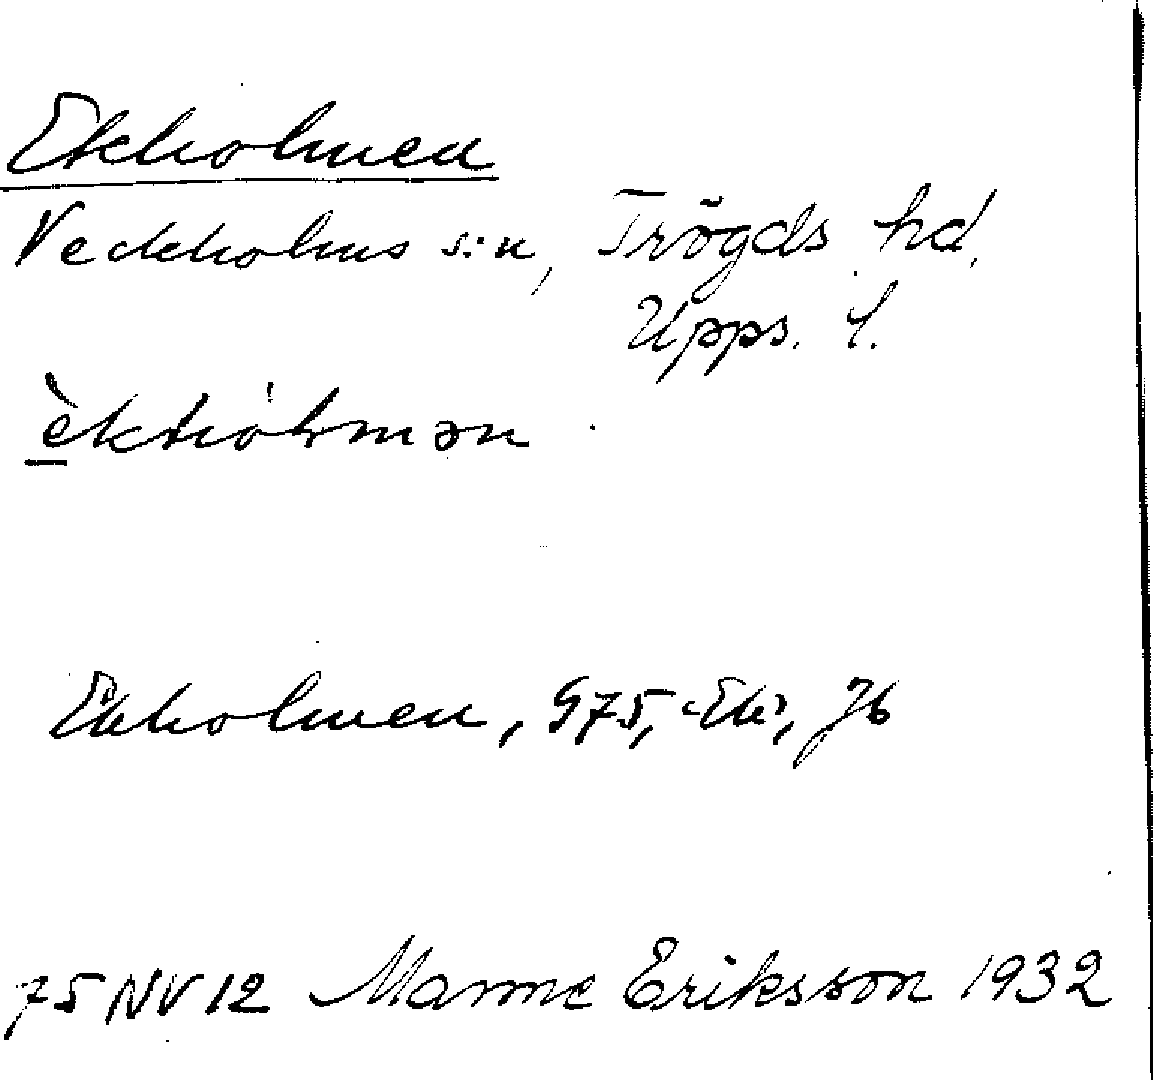 Ekholmen
Veckholms s:n, Trögds hd,
Upps. l.
èkhólmən
Ekholmen, G75, "Ek", Jb
75 NV 12 Manne Eriksson 1932